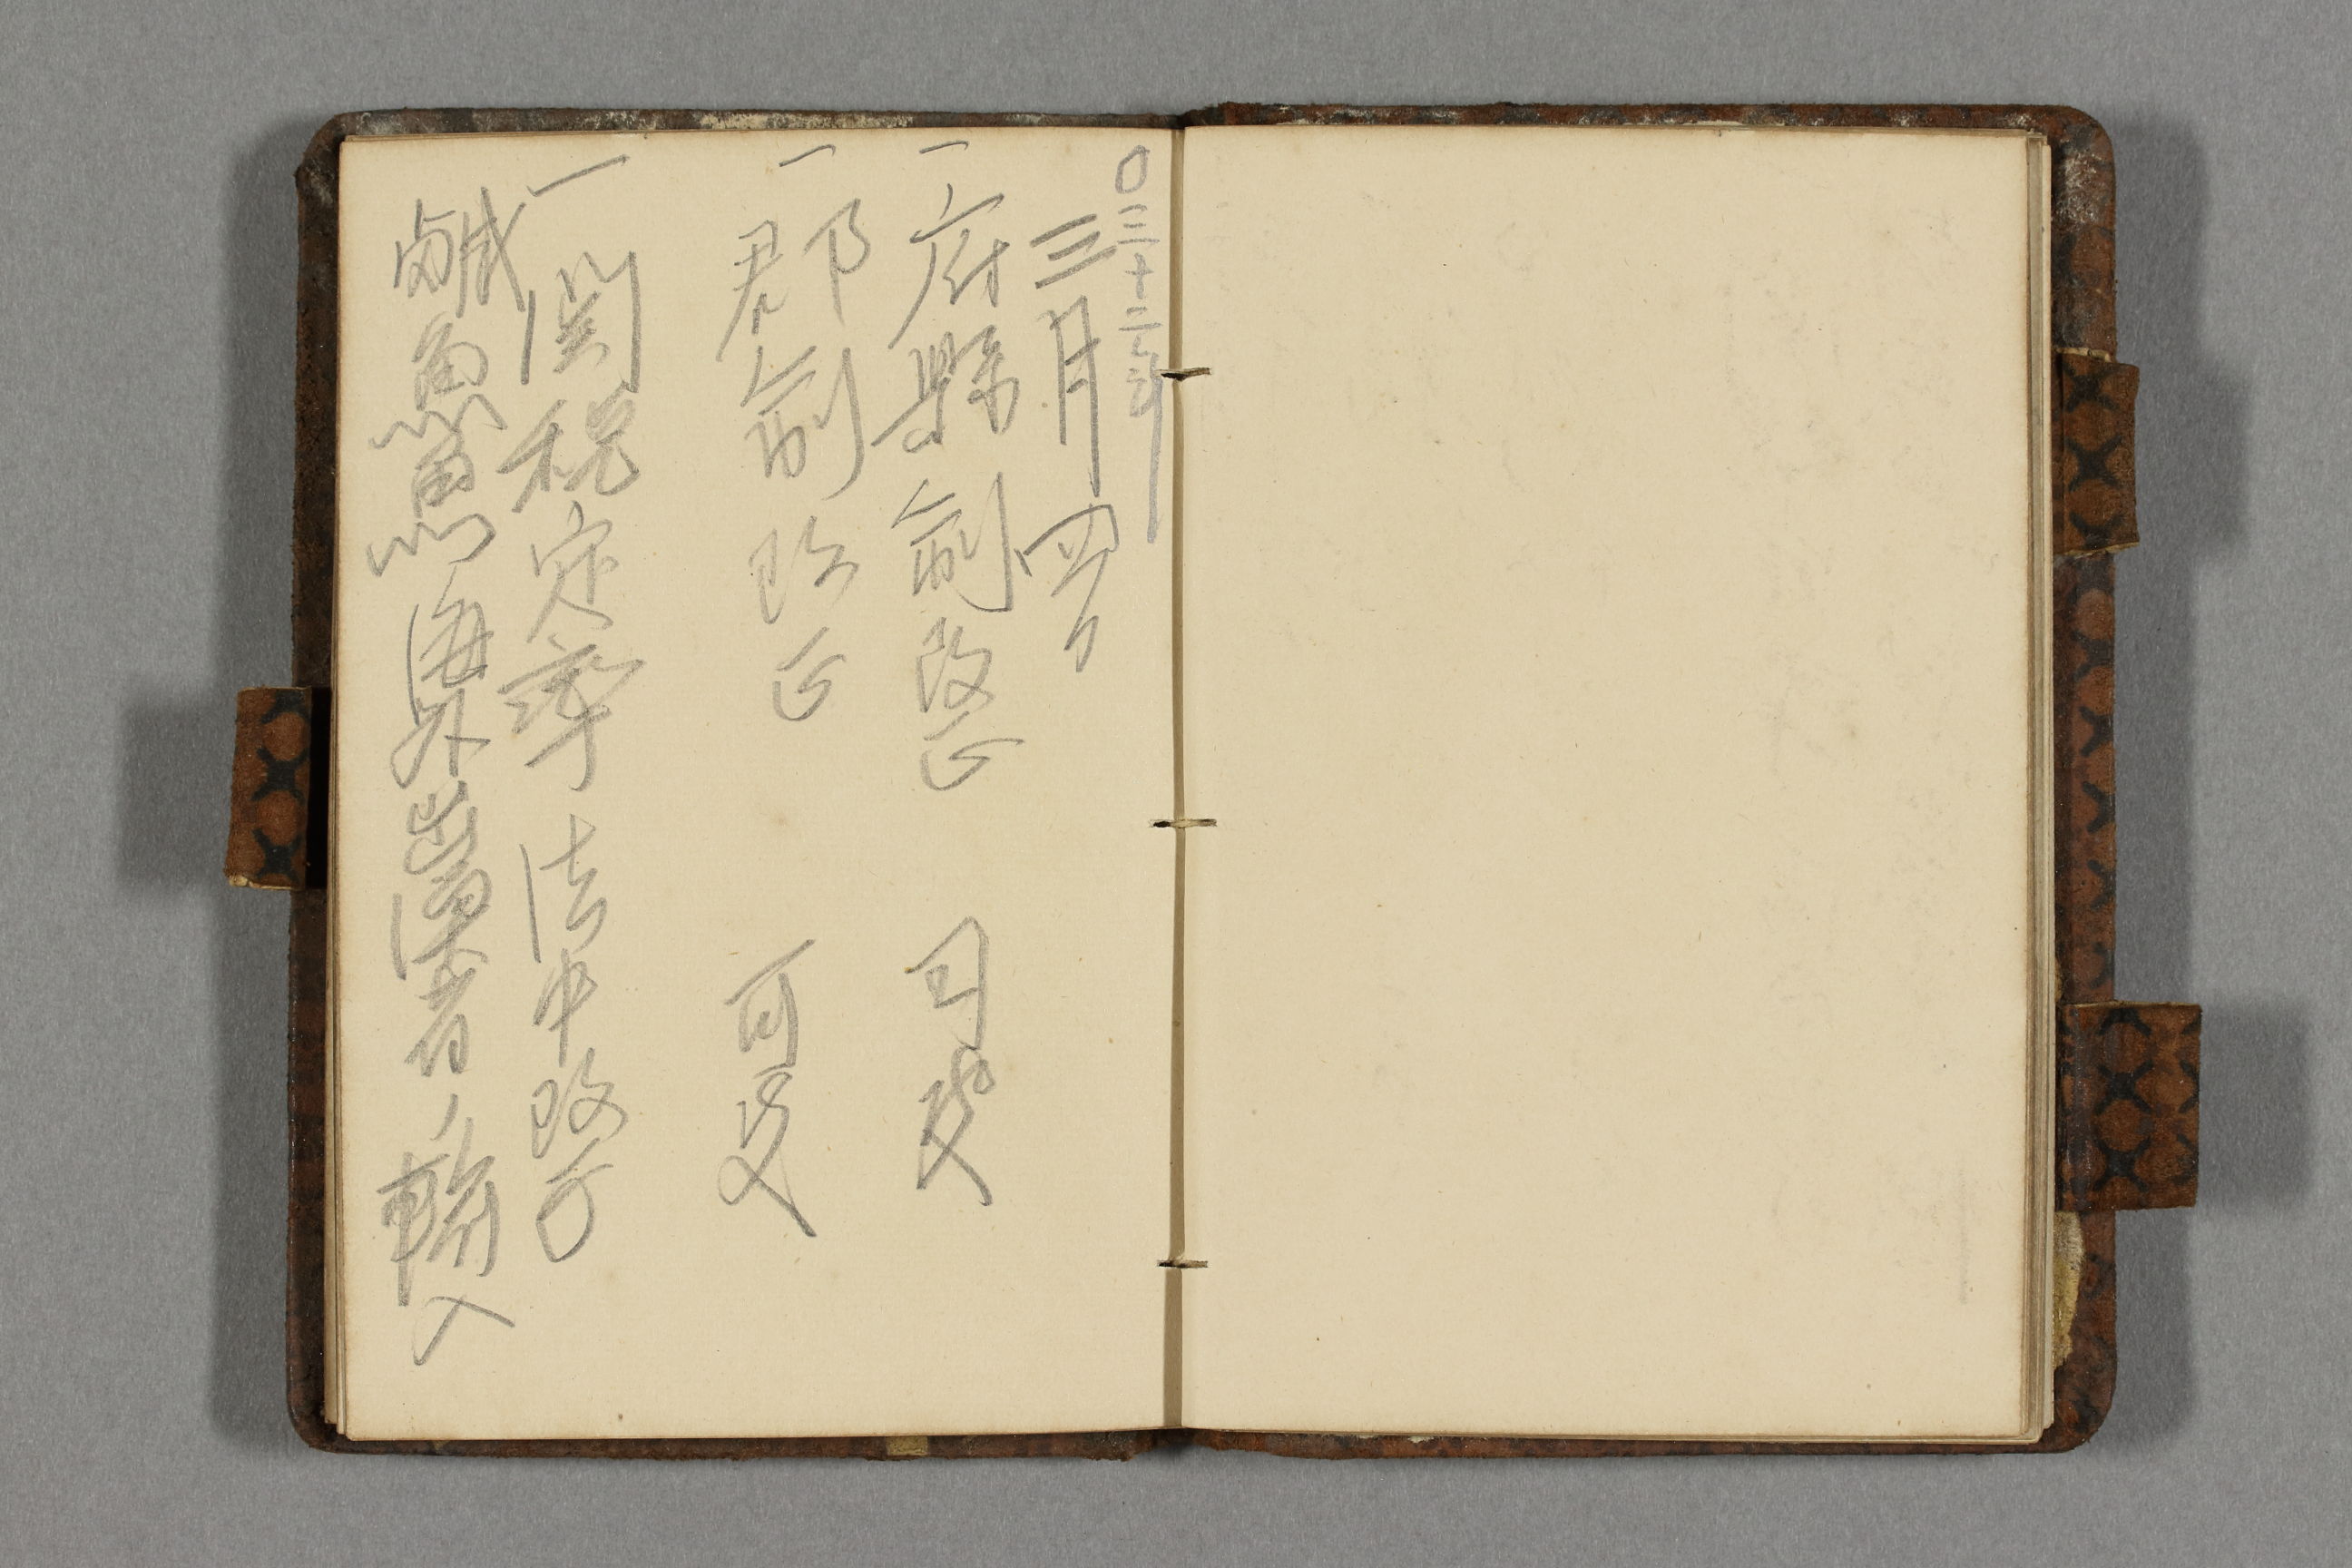 〇三十二年
三月四日
一府縣制改正 可決
一郡制改正 可決
一関税定率法中改正
鹹魚鯨海外出漁者ノ輸入